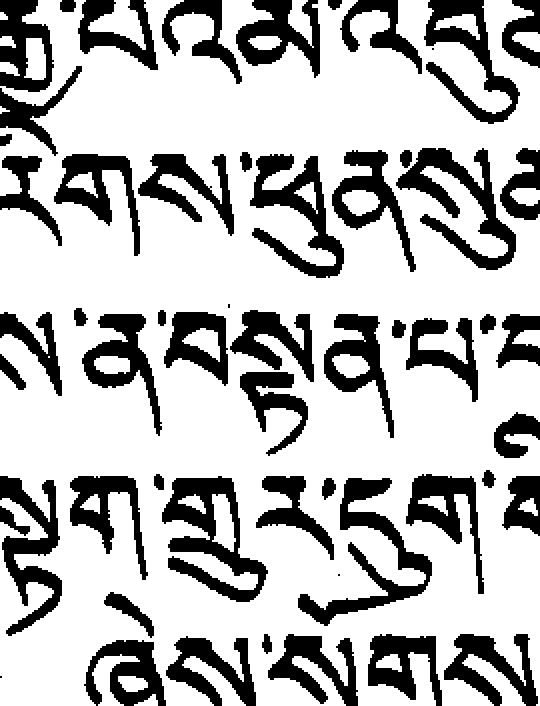 ་པའམ་འབུ
རིགས་ཕུན་སུ
ས་ན་བསྟན་པ་
སྟག་གྲུར་དུག་
ཞེས་སོགས